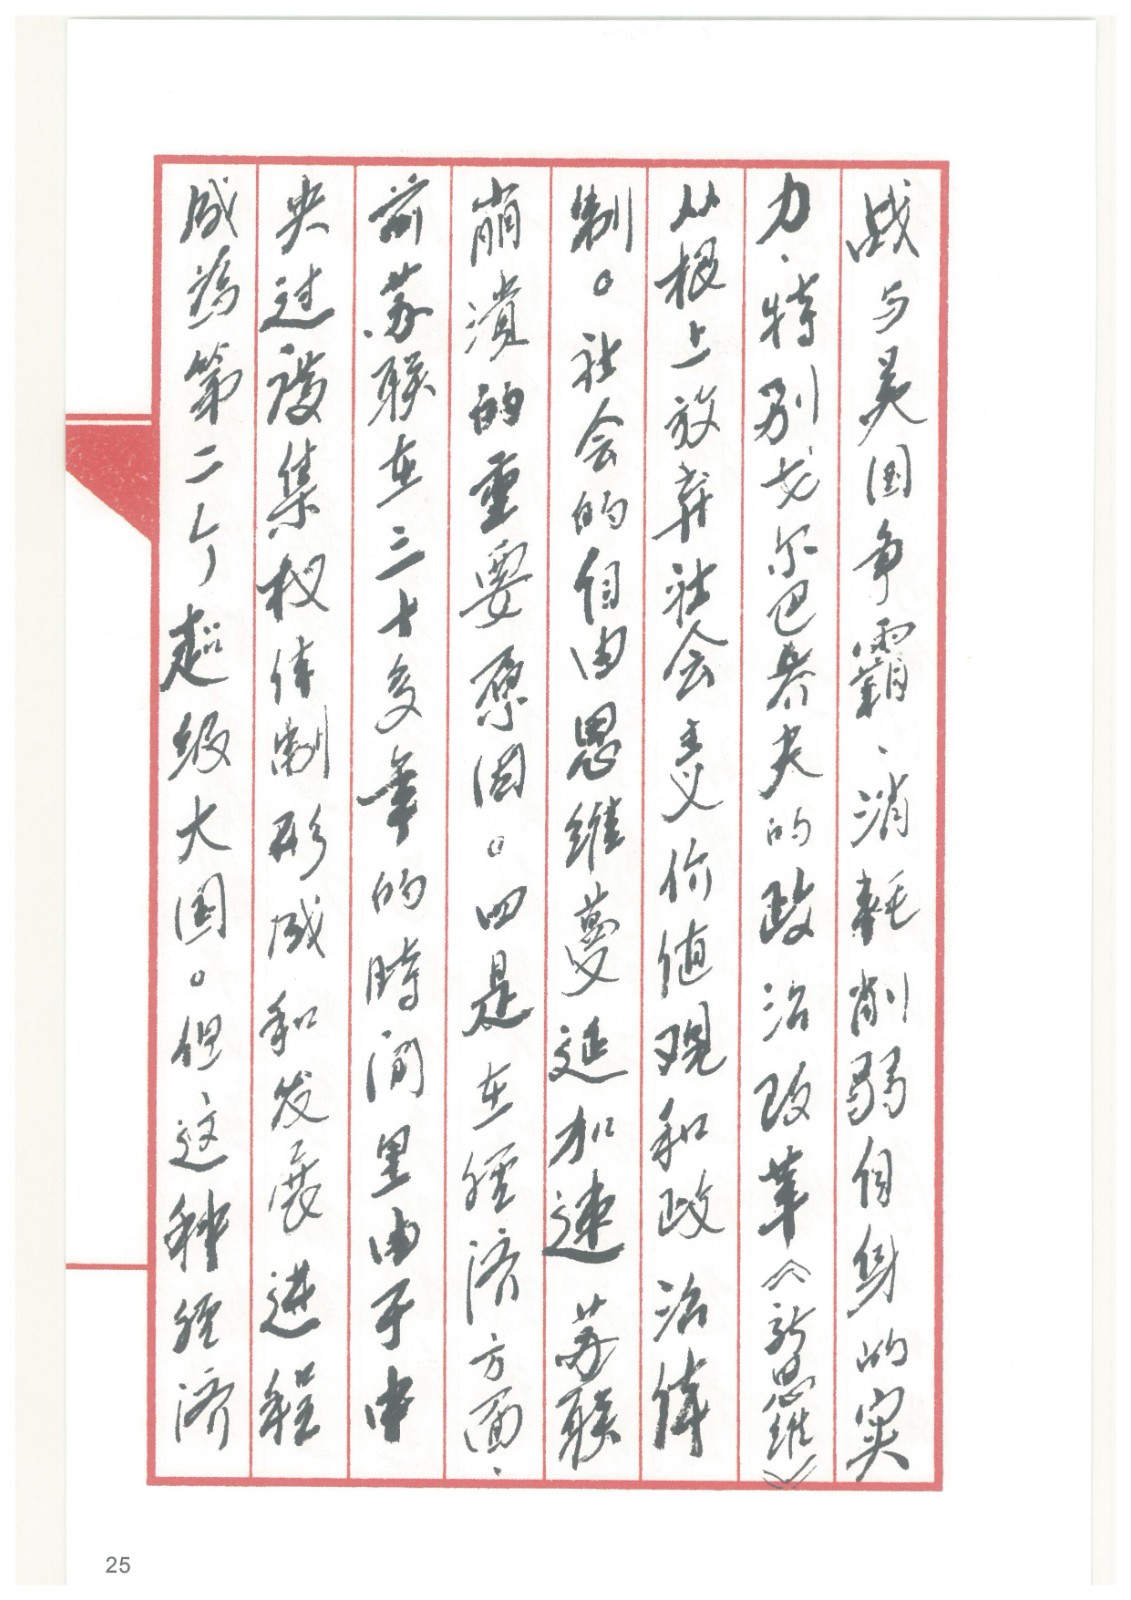 战与美国争霸、消耗削弱自身的实
力、特别戈尔巴乔夫的政治改革《新思维》
从根上放弃社会主义价值观和政治体
制。社会的自由思维蔓延加速苏联
崩溃的重要原因。四是在经济方面、
前苏联在三十多年的時间里由于中
央过度集权体制形成和发展进程
成为第二个超级大国。但这种经济
25